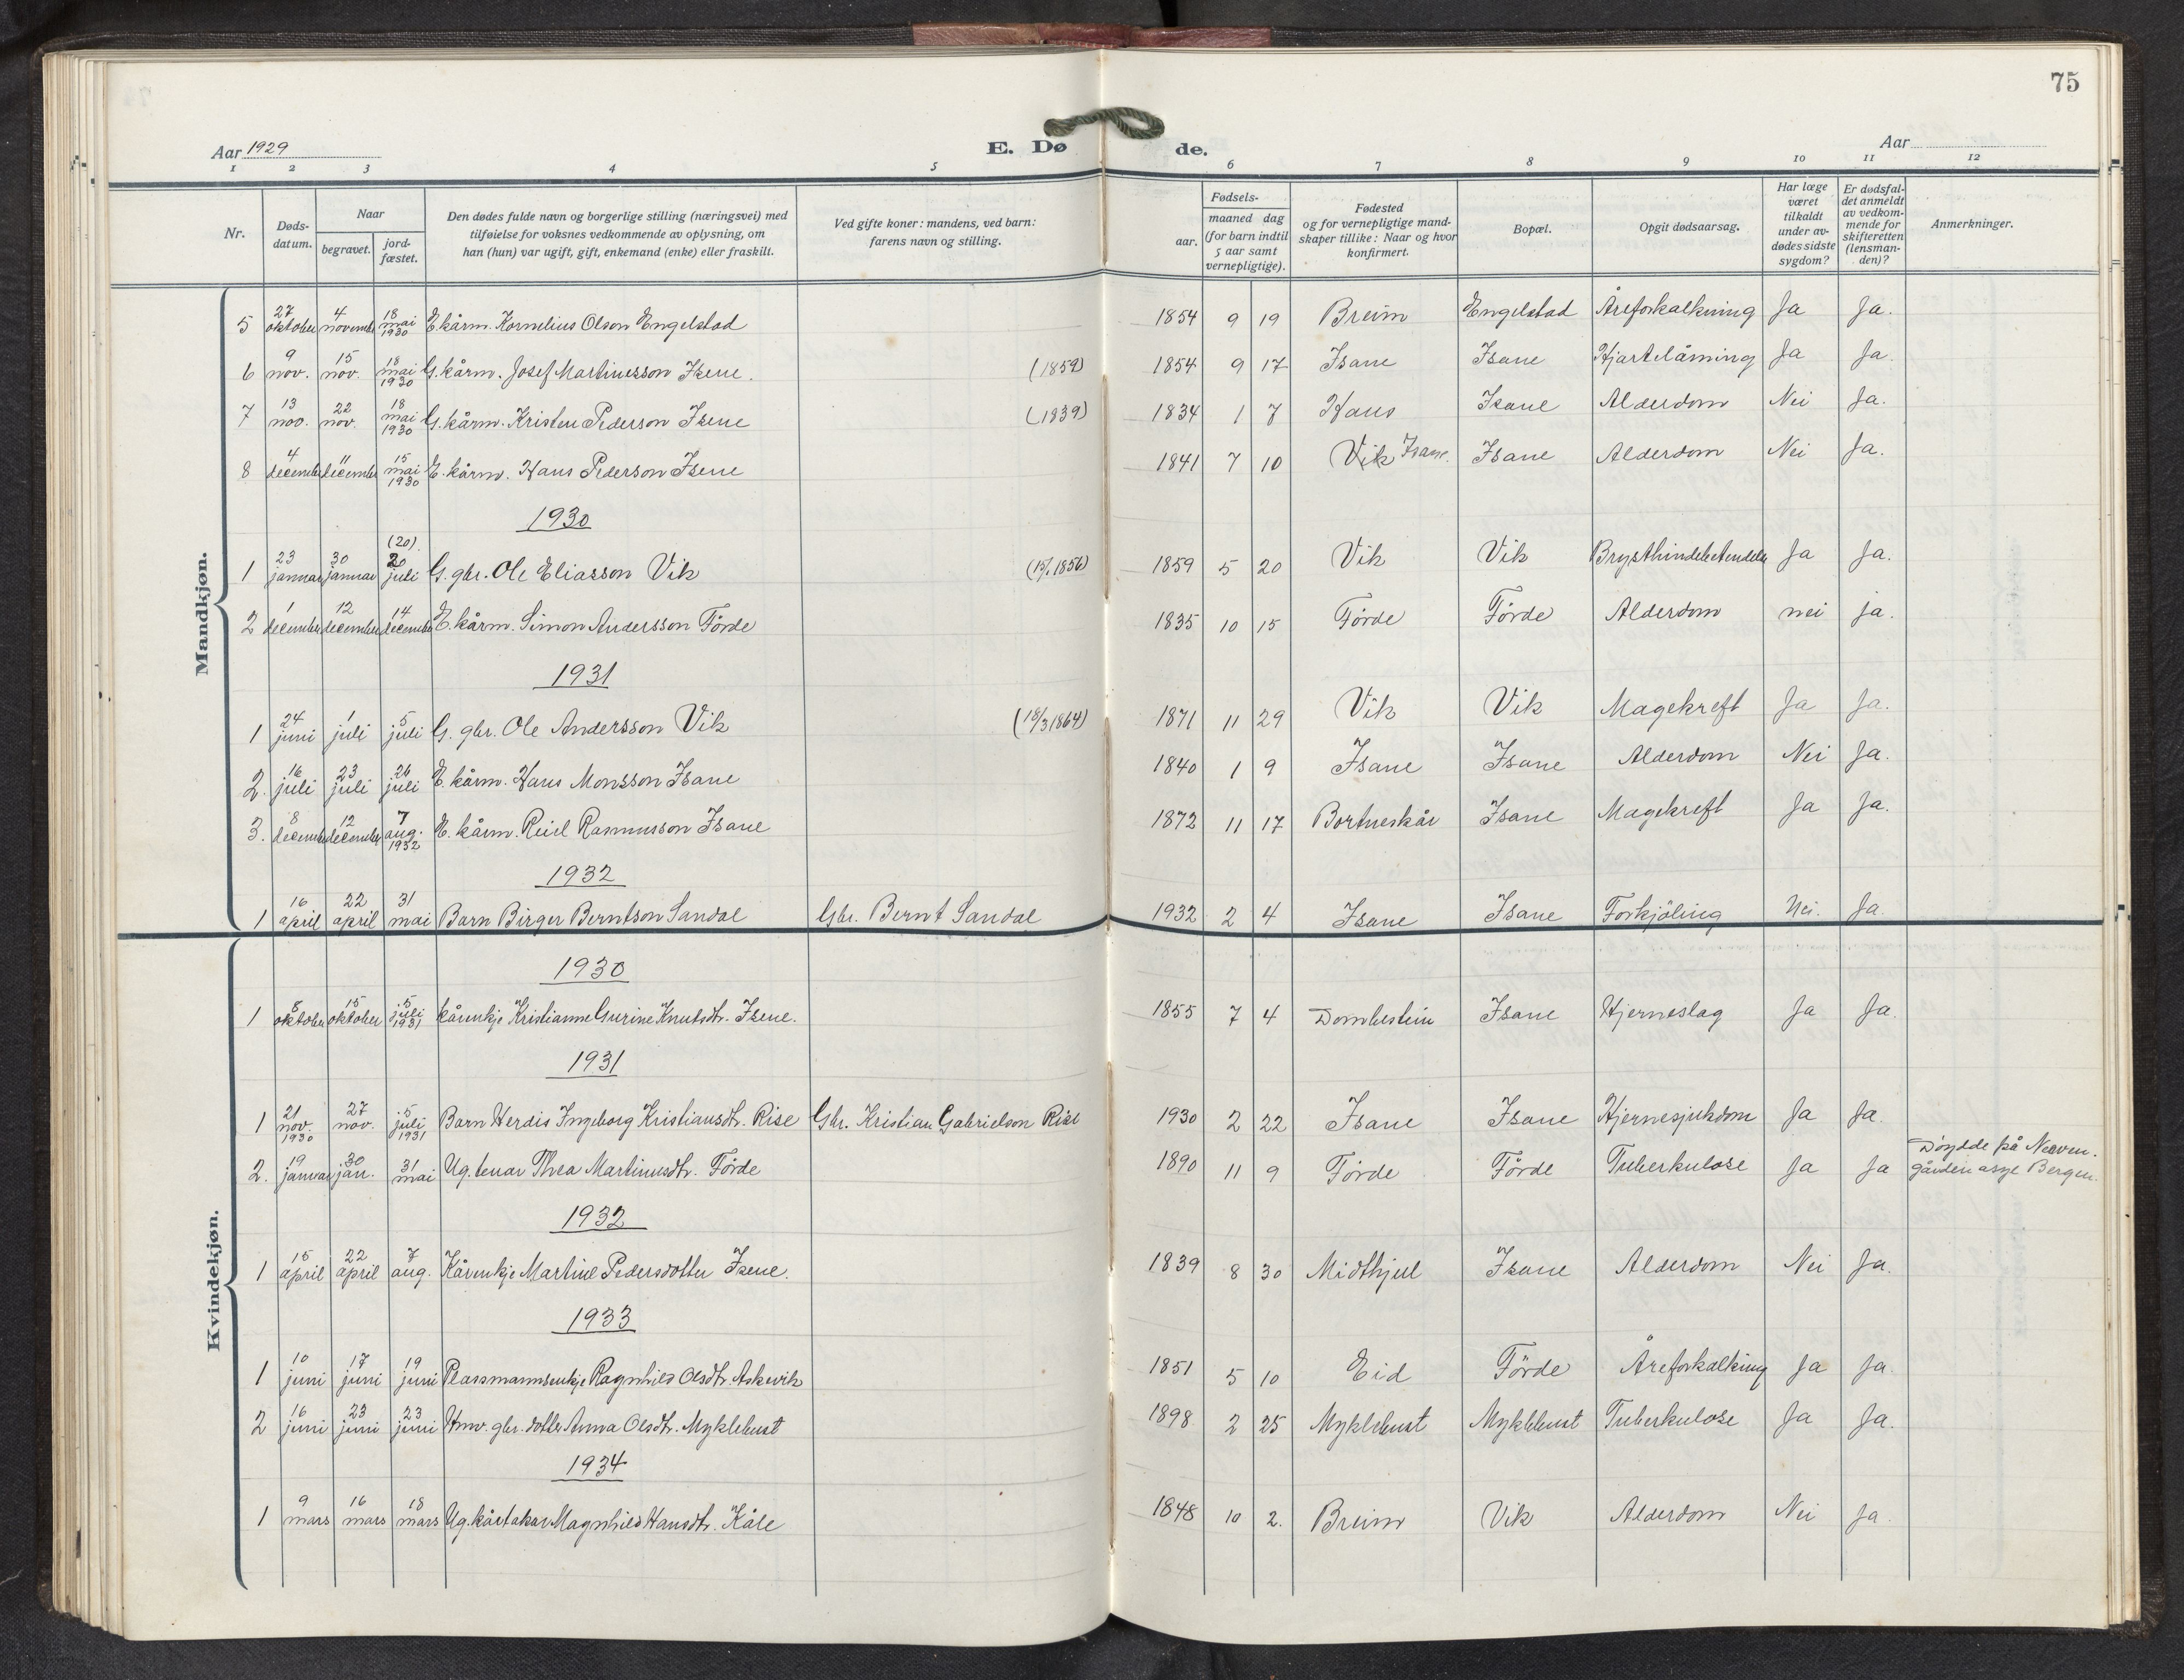 75
Aar 1929
E. Dø de.
Aar
1 2 3 4 5 6 7 8 9 10 11 12
Nr.
Døds-datum.
Naar
begravet.
jord-fæstet.
Den dødes fulde navn og borgerlige stilling (næringsvei) med
tilføielse for voksnes vedkommende av oplysning, om
han (hun) var ugift, gift, enkemand (enke) eller fraskilt.
Ved gifte koner: mandens, ved barn:
farens navn og stilling.
Fødsels-
aar.
maaned dag
(for barn indtil
5 aar samt
vernepligtige).
Fødested
og for vernepligtige mand-
skaper tillike: Naar og hvor
konfirmert.
Bopæl.
Opgit dødsaarsag.
Har læge
været
tilkaldt
under av-
dødes sidste
sygdom?
Er dødsfal-
det anmeldt
av vedkom-
mende for
skifteretten
(lensman-
den)?
Anmerkninger.
Mandkjøn.
5 27 oktober 4 novembr 18 mai 1930 E. kårm. Kornelius Olson Engelstad 1854 9 19 Breim Engelstad Åreforkalkning Ja Ja.
6 9 nov. 15 nov. 18 mai 1930 G. kårm. Josef Martinusson Isene. (1859) 1854 9 17 Isane Isane Hjartelåming Ja Ja.
7 13 nov. 22 nov. 18 mai 1930 G. kårm. Kristen Pederson Isene (1839) 1834 1 7 Haus Isane Alderdom Nei Ja.
8 4 december 11 december 15 mai 1930 E. kårm. Hans Pederson Isene 1841 7 10 Vik Isane. Isane Alderdom Nei Ja.
1930
1 23 januar 30 januar (20) 20 juli G. gbr. Ole Eliasson Vik 1859 5 20 Vik Vik Brysthindebetendelse Ja Ja.
2 1 december 12 december 14 december E. kårm. Simon Andersson Förde 1835 10 15 Förde Förde Alderdom nei ja.
1931
1 24 juni 1 juli 5 juli G. gbr. Ole Andersson Vik (18/3 1864) 1871 11 29 Vik Vik Magekreft Ja Ja.
2. 16 juli 23 juli 26 juli E. kårm. Hans Monsson Isane 1840 1 9 Isane Isane Alderdom Nei Ja.
3. 8 december 12 december 7 aug. 1932 E. kårm. Reiel Rasmusson Isane 1872 11 17 Bortneskår Isane Magekreft Ja Ja.
1932
1 16 april 22 april 31 mai Barn Birger Berntson Sandal Gbr. Bernt Sandal 1932 2 4 Isane Isane Forkjöling Nei. Ja.
Kvindekjøn.
1930
1 8 oktober 15 oktober 5 juli 1931 kårenkje Kristianne Gurine Knutsdtr. Isene. 1855 7 4 Dombestein Isane Hjerneslag Ja Ja.
1931
1 21 nov. 1930 27 nov. 5 juli 1931 Barn Herdis Ingeborg Kristiansdtr. Rise Gbr. Kristian Gabrielson Rise 1930 2 22 Isane Isane Hjernesjukdom Ja Ja.
2. 19 januar 30 jan. 31 mai Ug. tenar Thea Martinusdtr. Förde 1890 11 9 Förde Förde Tuberkulose Ja Ja Döydde på Neeven-
gården asyl Bergen.
1932
1 15 april 22 april 7 aug. Kårenkje Martine Pedersdotter Isene. 1839 8 30 Midthjell Isane Alderdom Nei Ja.
1933
1 10 juni 17 juni 19 juni Plassmannsenkje Ragnhild Olsdtr. Askevik 1851 5 10 Eid Förde Åreforkalking Ja Ja.
2 16 juni 23 juni 23 juni Unv. gbr. dotter Anna Olsdtr. Myklebust 1898 2 25 Myklebust Myklebust Tuberkulose Ja Ja.
1934
1 9 mars 16 mars 18 mars Ug. kårtakar Magnhild Hansdtr. Kåle 1848 10 2. Breim Vik Alderdom Nei Ja.